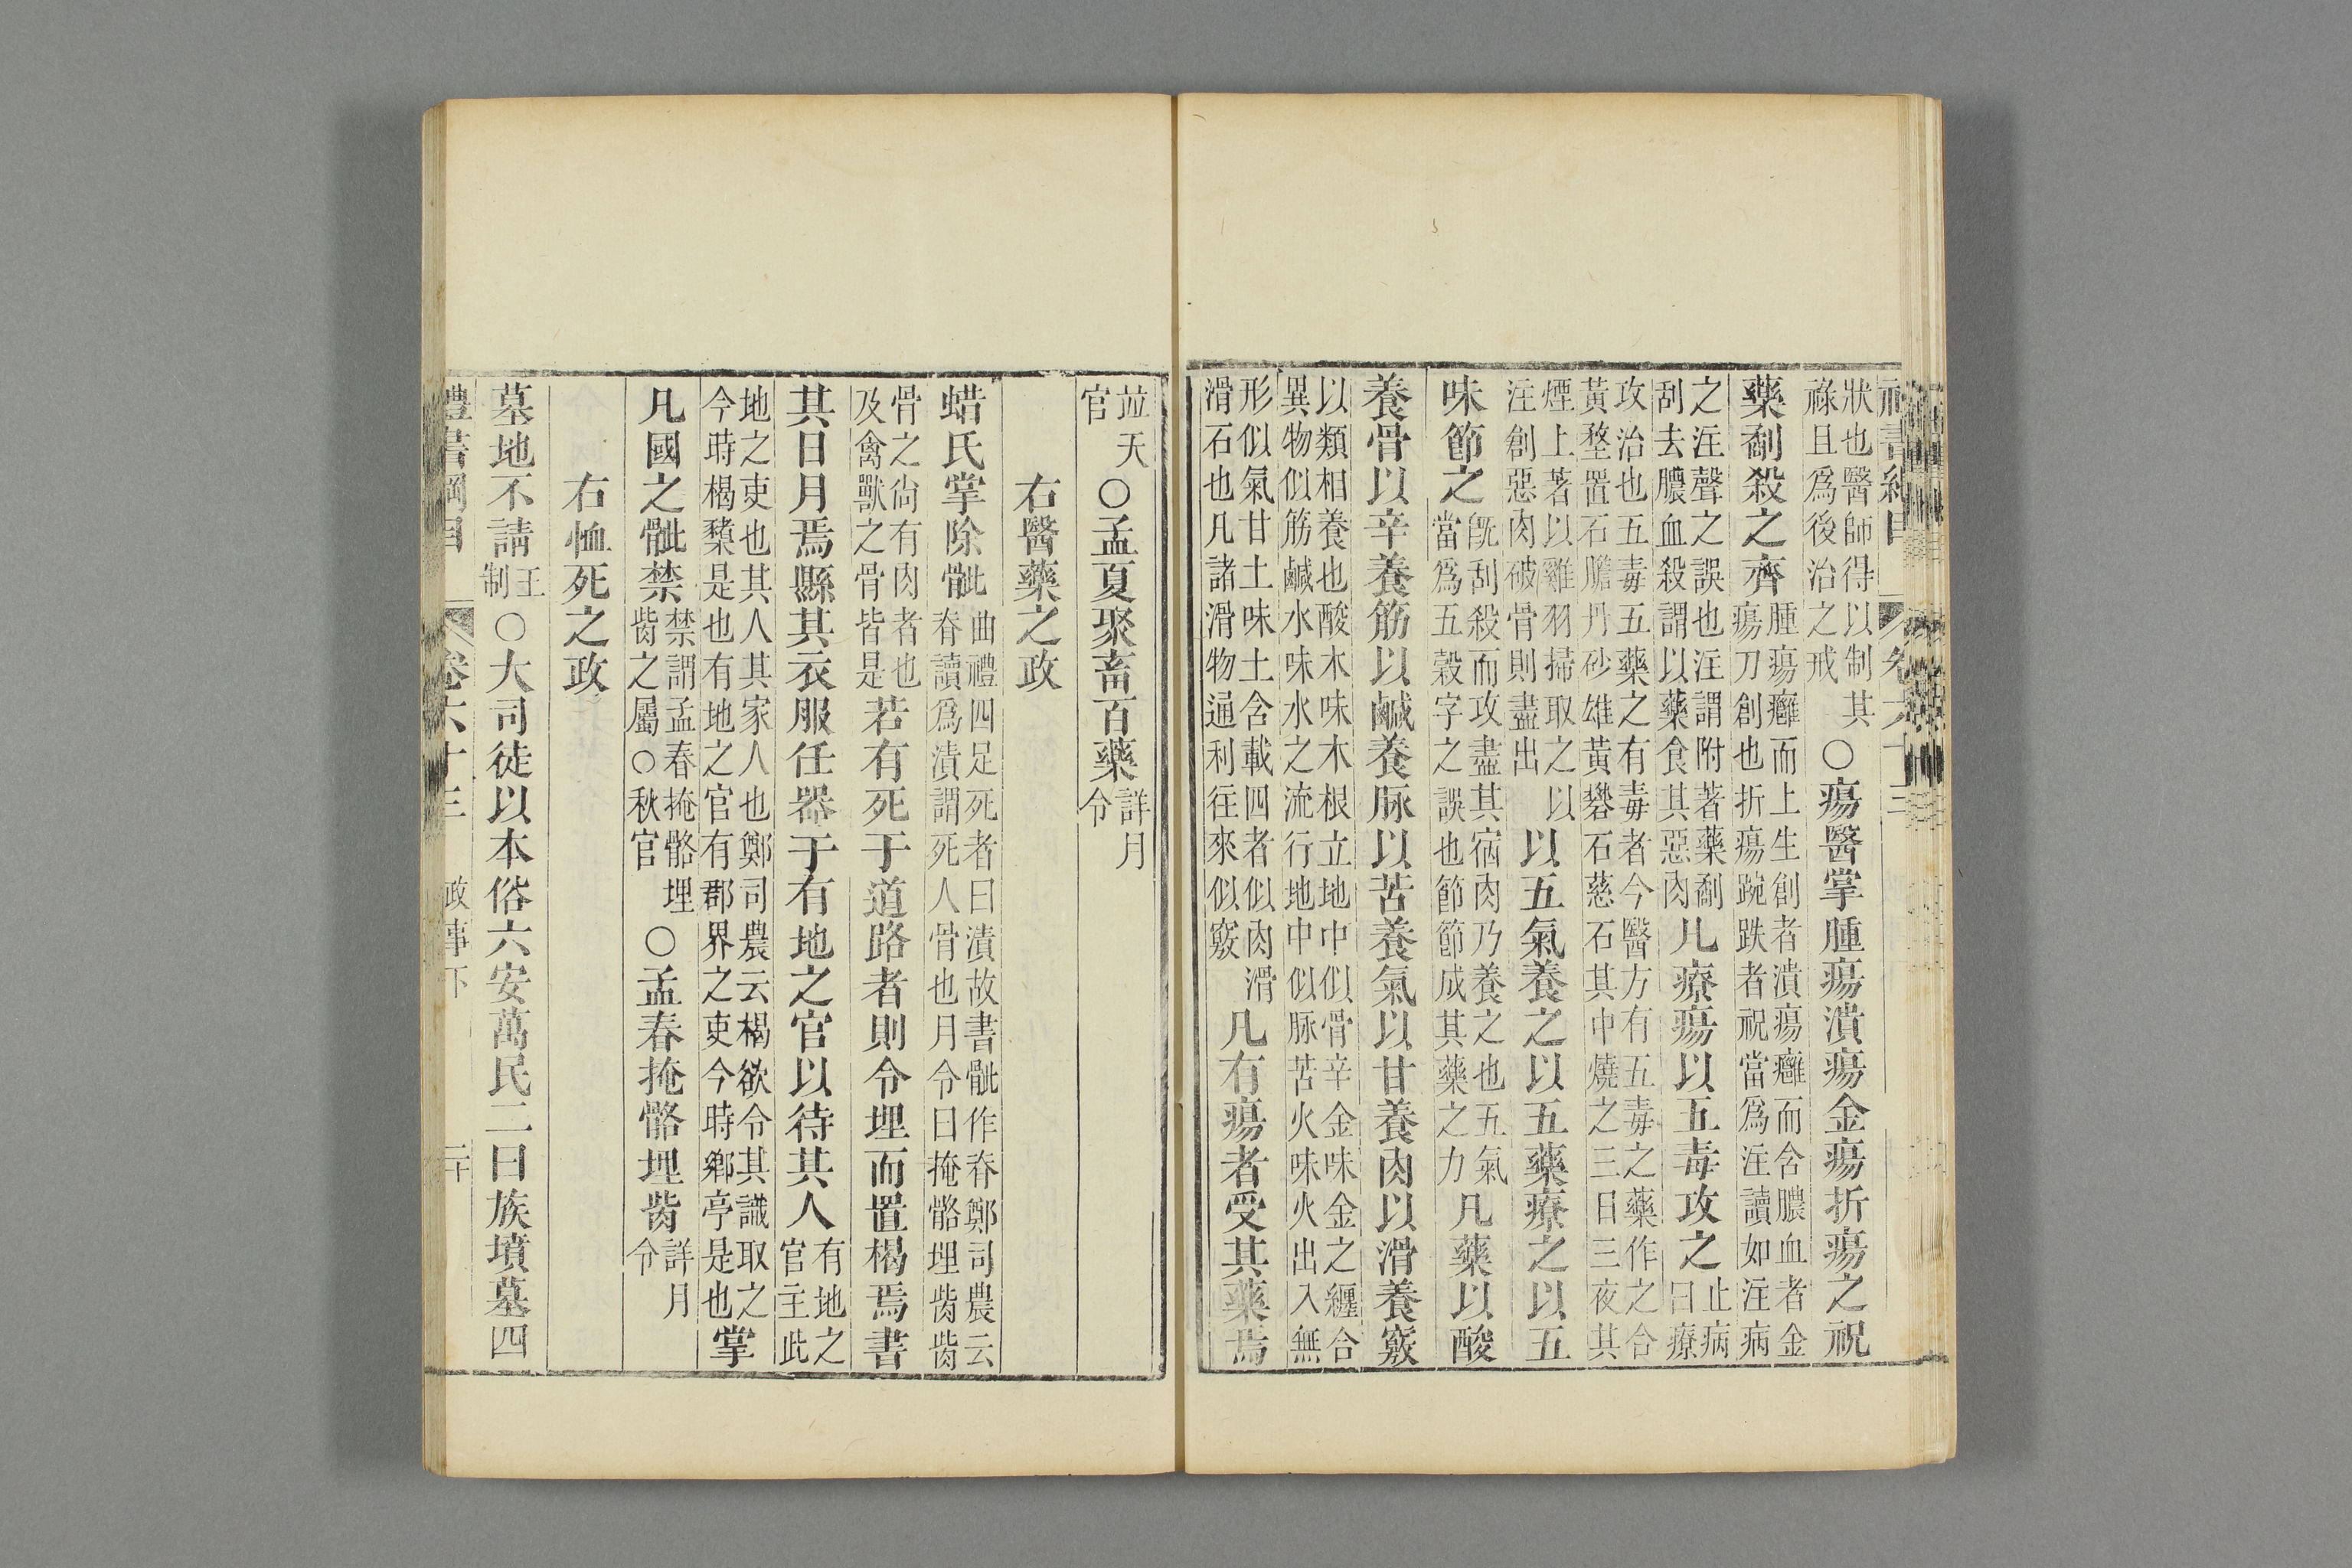 狀也醫師得以制其祿且爲後治之戒○瘍醫掌腫瘍潰瘍金瘍折瘍之祝
藥劀殺之齊腫瘍癰而上生創者潰瘍癰而含膿血者金瘍刀創也折瘍踠跌者祝當爲注讀如注病
之注聲之誤也注謂附著藥劀刮去膿血殺謂以藥食其惡肉凡療瘍以五毒攻之止病曰療
攻治也五毒五藥之有毒者今醫方有五毒之藥作之合黃堥置石膽丹砂雄黃礜石慈石其中燒之三日三夜其
煙上著以雞羽掃取之以注創惡肉破骨則盡出以五氣養之以五藥療之以五
味節之旣刮殺而攻盡其宿肉乃養之也五氣當爲五穀字之誤也節節成其藥之力凡藥以酸
養骨以辛養筋以鹹養脉以苦養氣以甘養肉以滑養竅
以類相養也酸木味木根立地中似骨辛金味金之纏合異物似筋鹹水味水之流行地中似脉苦火味火出入無
形似氣甘土味土含載四者似肉滑滑石也凡諸滑物通利往來似竅凡有瘍者受其藥焉
並天官○孟夏聚畜百藥詳月令
右醫藥之政
蜡氏掌除骴曲禮四足死者曰漬故書骴作脊鄭司農云脊讀爲漬謂死人骨也月令曰掩骼埋胔胔
骨之尙有肉者也及禽獸之骨皆是若有死于道路者則令埋而置楬焉書
其日月焉縣其衣服任器于有地之官以待其人有地之官主此
地之吏也其人其家人也鄭司農云楬欲令其識取之今時楬櫫是也有地之官有郡界之吏今時鄕亭是也掌
凡國之骴禁禁謂孟春掩骼埋胔之屬○秋官○孟春掩骼埋胔詳月令
右恤死之政
墓地不請王制○大司徒以本俗六安萬民二曰族墳墓四
禮書綱目 卷六十三 政事下